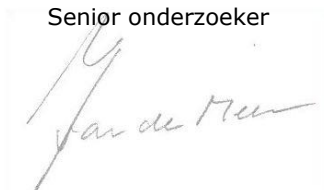 Senior onderzoeker
van de Meer